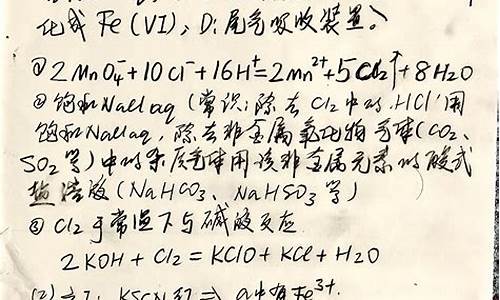 化成 Fe(VI), D: 尾气吸收装置。
① 2MnO4⁻+10Cl⁻+16H⁺=2Mn²⁺+5Cl2↑+8H2O
② 饱和NaCl aq (常识: 除去Cl2中的HCl用
饱和NaCl aq, 除去非金属氧化物气体(CO2、
SO2等)中的杂质气体用该非金属元素的酸式
盐溶液(NaHCO3、NaHSO3等)
③ Cl2于常温下与碱液反应
2KOH + Cl2 = KClO + KCl + H2O
(2) KSCN红 ⇒ a中有Fe³⁺.